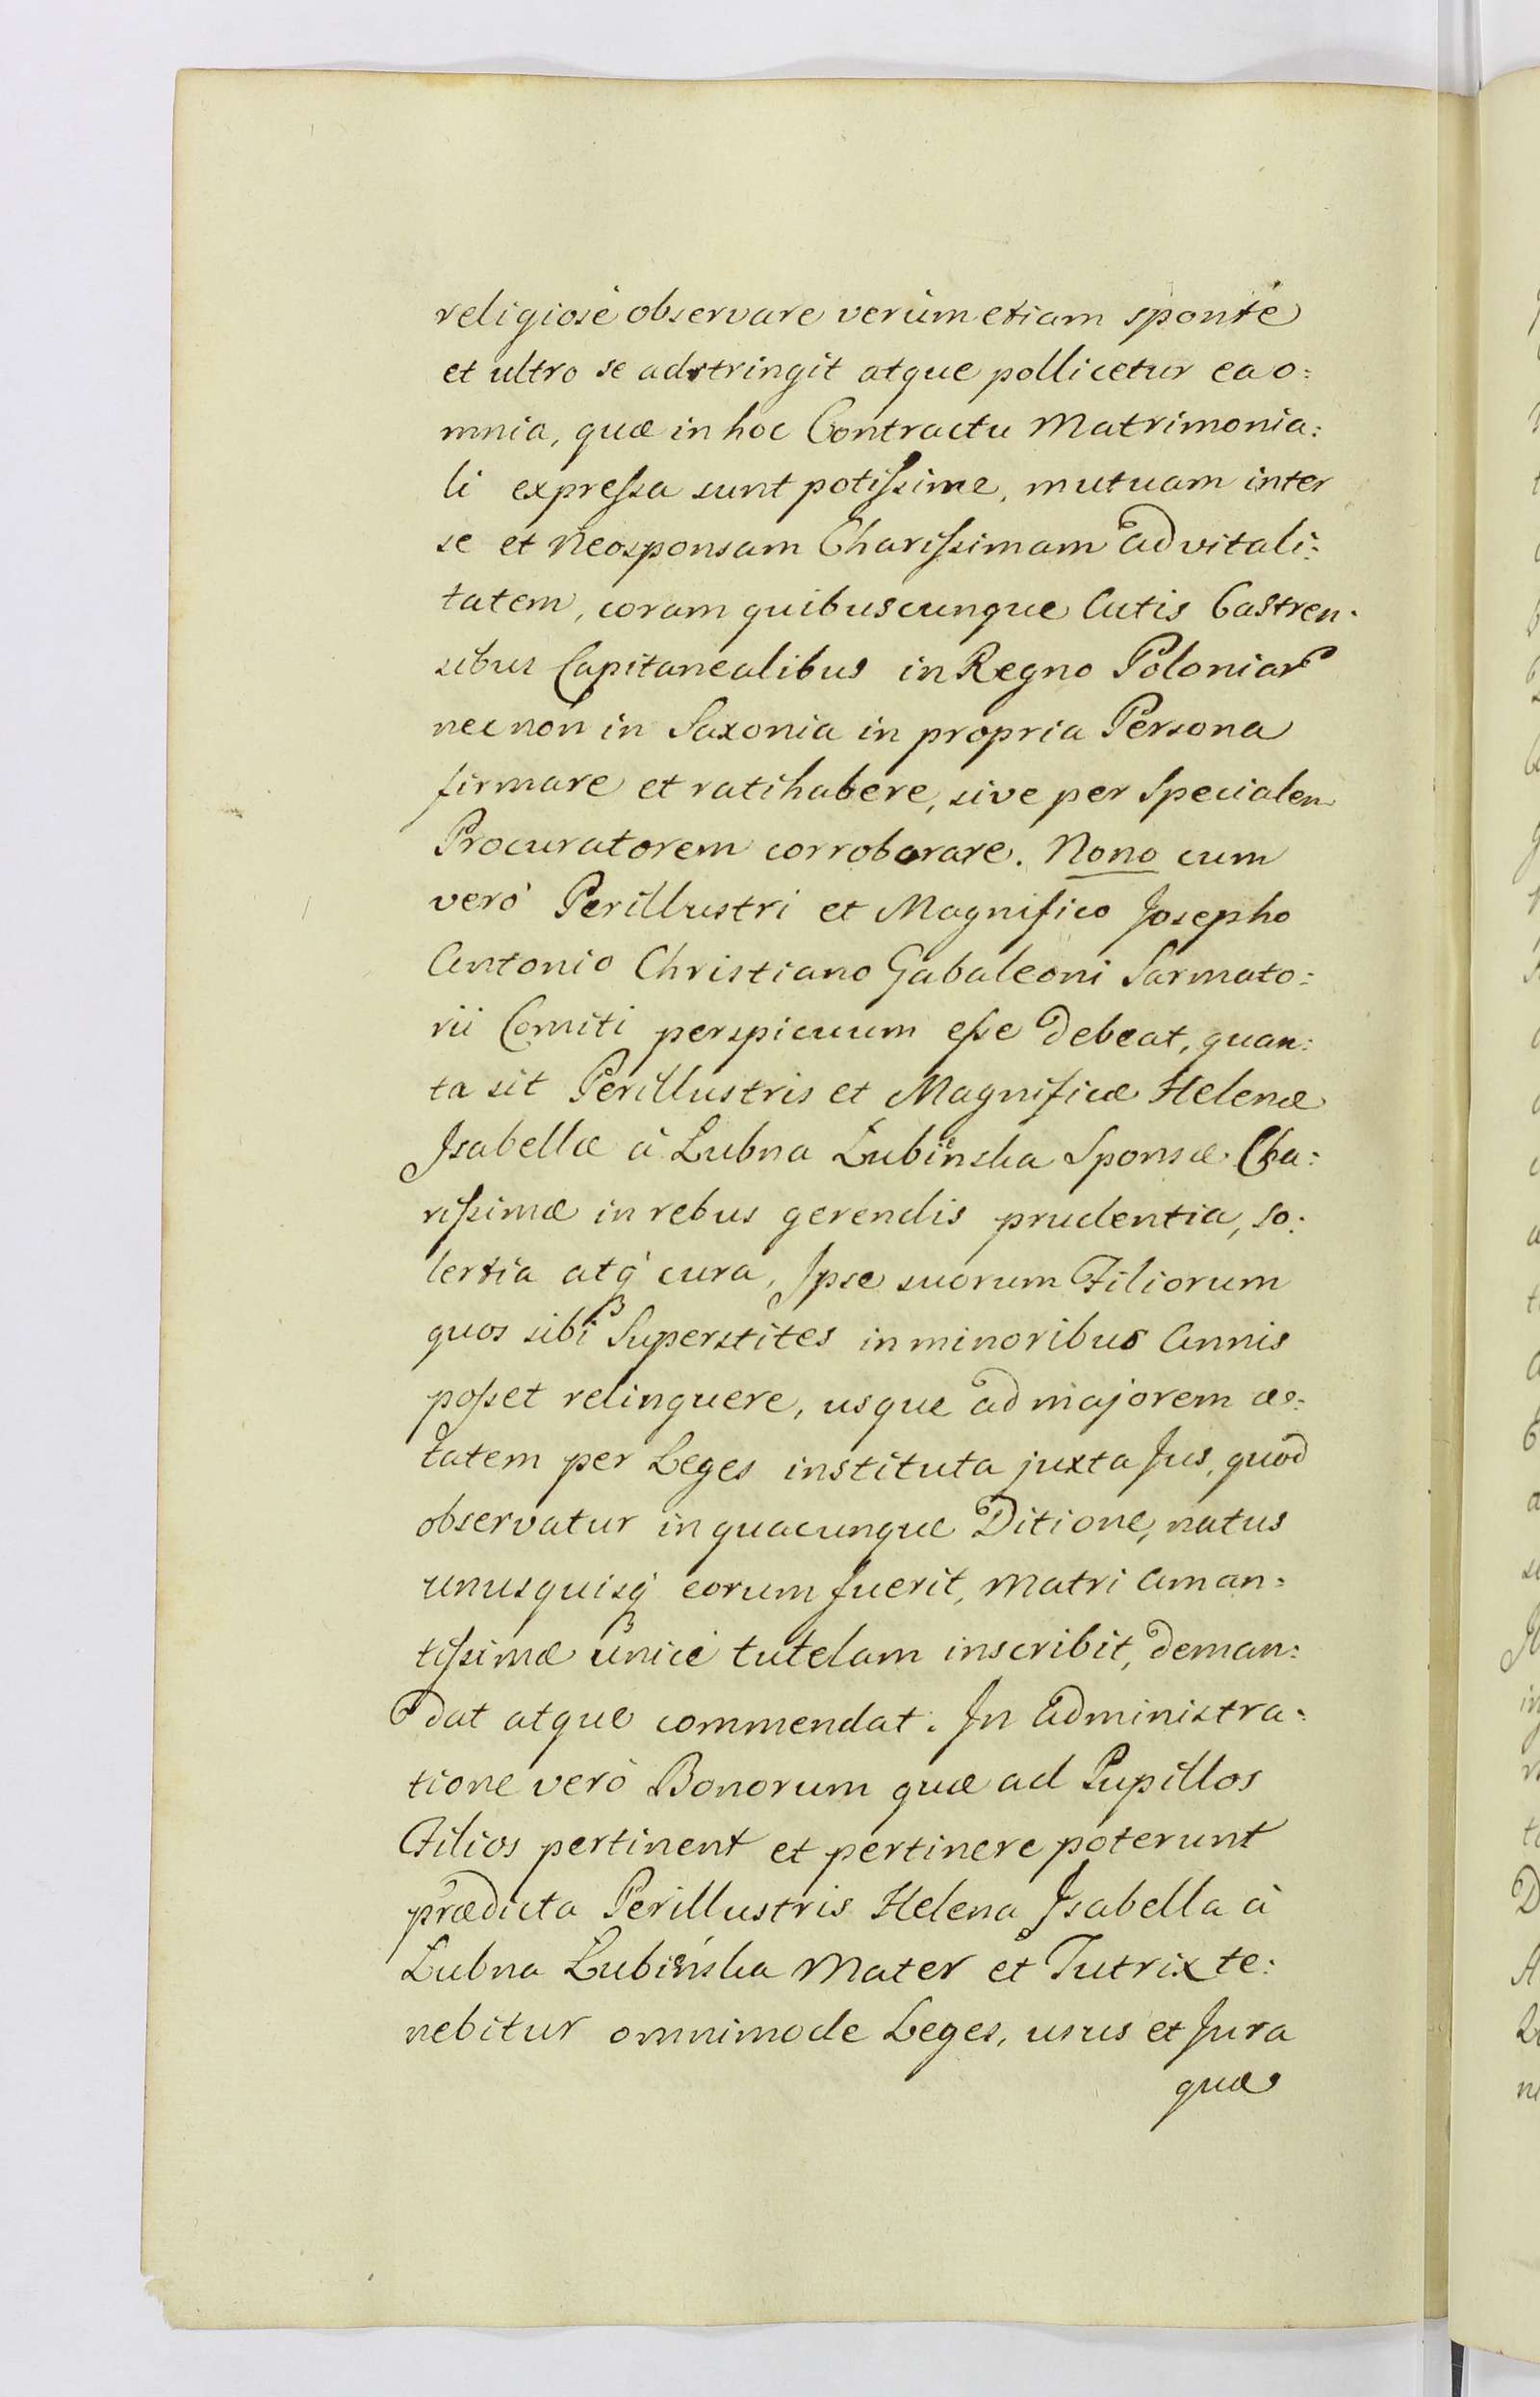 religiosè observare verùm etiam spontè
et ultro se adstringit atque pollicetur ea o:
mnia, quæ in hoc Contractu Matrimonia:
li expreſsa sunt potiſsime, mutuam inter
se et Neosponsam Chariſsimam advitali:
tatem, coram quibuscunque Actis Castren:
sibus Capitanealibus in Regno Poloniar
nec non in Saxonia in propria Persona
firmare et ratihabere, sive per Specialem
Procuratorem corroborare. Nono cum
verò Perillustri et Magnifico Josepho
Antonio Christiano Gabaleoni Sarmato:
rii Comiti perspicuum eſse debeat, quan:
ta sit Perillustris et Magnificæ Helenæ
Isabellæ à Łubna Łubieńska Sponsæ Cha:
riſsimæ in rebus gerendis prudentia, so:
lertia atq́ cura, Ipse suorum Filiorum
quos sibi Superstites in minoribus Annis
poſset relinquere, usque ad majorem æ:
tatem per Leges instituta juxta Jus, quod
observatur in quacunque Ditione, natus
unusquisq́ eorum fuerit, Matri Aman:
tiſsimæ unicè tutelam inscribit, deman:
dat atque commendat. In Administra:
tione verò Bonorum quæ ad Pupillos
Filios pertinent et pertinere poterunt
prædicta Perillustris Helena Isabella à
Łubna Łubieńska Mater et Tutrix te:
nebitur omnimode Leges, usus et Jura
quæ